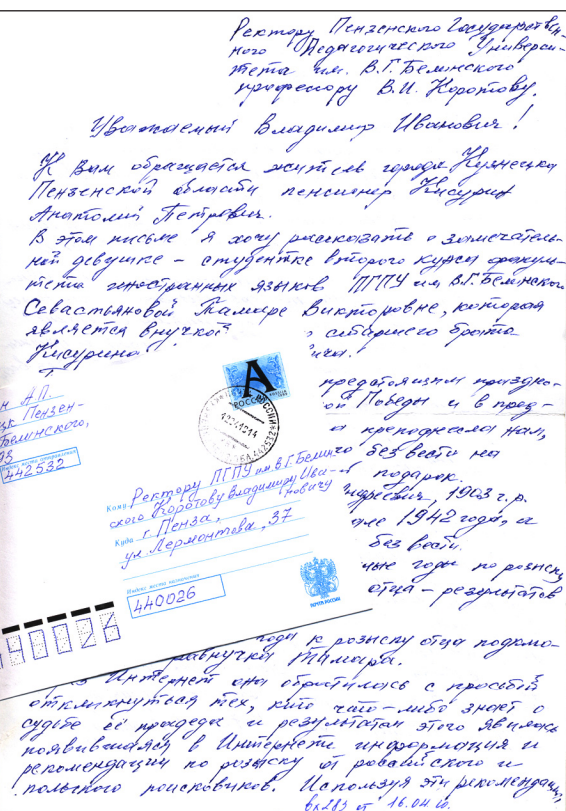 Ректору Пензенского Государствен-
ного Педагогического Универси-
тета им. В.Г. Белинского
профессору В.И. Коротову.
Уважаемый Владимир Иванович!
К Вам обращается житель города Кузнецка
Пензенской области пенсионер Кисурин
Анатолий Петрович.
В этом письме я хочу рассказать о замечатель-
ной девушке – студентке второго курса факуль-
тета иностранных языков ПГПУ им В.Г. Белинского
Севастьяновой Тамаре Викторовне, которая
является внучкой старшего брата
Кисурина
предстоящим праздно-
ой Победы и в пред-
а преподнесла нам,
го без вести на
подарок.
ндреевич, 1903 г.р.
1942 года, и
без вести.
ые годы по розыску
отца – результатов
года к розыску отца подклю-
равнучка Тамара.
Интернет она обратилась с просьбой
откликнуться тех, кто что-либо знает о
судьбе её прадеда и результатом этого явилась
появившаяся в Интернете информация и
рекомендации по розыску от российского и
польского поисковиков. Используя эти рекомендации,
вх283 от 16.04.10.
н А.П.
цк Пензен-
Белинского,
93
442532
А
РОССИЯ
442532
Кому Ректору ПГПУ им. В.Г. Белин-
ского Коротову Владимиру Ива-
новичу
Куда г. Пенза,
ул Лермонтова, 37
Индекс места назначения
440026
ПОЧТА РОССИИ
40026